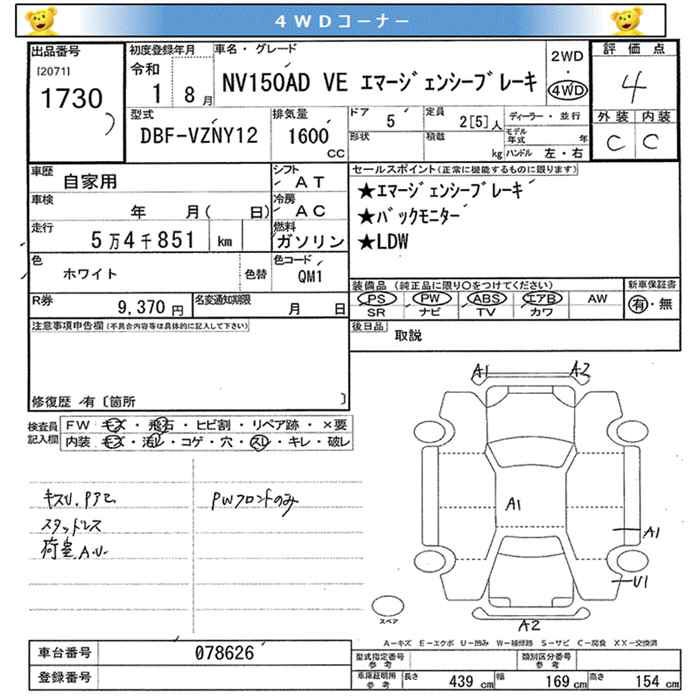 4WDコーナー
出品番号
[2071]
1730
初度登録年月
令和
1 8月
車名・グレード
NV150AD VE エマージェンシーブレーキ
2WD
・
4WD
評価点
4
外装 内装
C C
型式
DBF-VZNY12
排気量
1600
CC
ドア 5
定員 2[5]人
ディーラー・並行
形状
積載 kg
モデル年式 年
ハンドル 左・右
車歴
自家用
シフト
AT
車検
年 月( 日)
冷房
AC
走行
5万4千851 km
燃料
ガソリン
色
ホワイト
色替
色コード
QM1
R券
9,370円
名変通知期限
月 日
セールスポイント(正常に機能するものに限ります)
★エマージェンシーブレーキ
★バックモニター
★LDW
装備品 (純正品に限り○をつけてください)
PS PW ABS エアB AW
SR ナビ TV カワ
新車保証書
有・無
後日品
取説
注意事項申告欄(不具合内容等は具体的に記入して下さい)
修復歴 有〔箇所 〕
検査員
記入欄
FW キズ・飛石・ヒビ割・リペア跡・×要
内装 キズ・汚レ・コゲ・穴・スレ・キレ・破レ
スタッドレス
荷室A.U.
PWフロントのみ
A1 A2
A1
A1
U1
A2
スペア
A－キズ E－エクボ U－凹み W－補修跡 S－サビ C－腐食 XX－交換済
車台番号
078626
登録番号
型式指定番号
参考
類別区分番号
参考
車庫証明所
参考
長さ 439 cm 幅 169 cm 高さ 154 cm